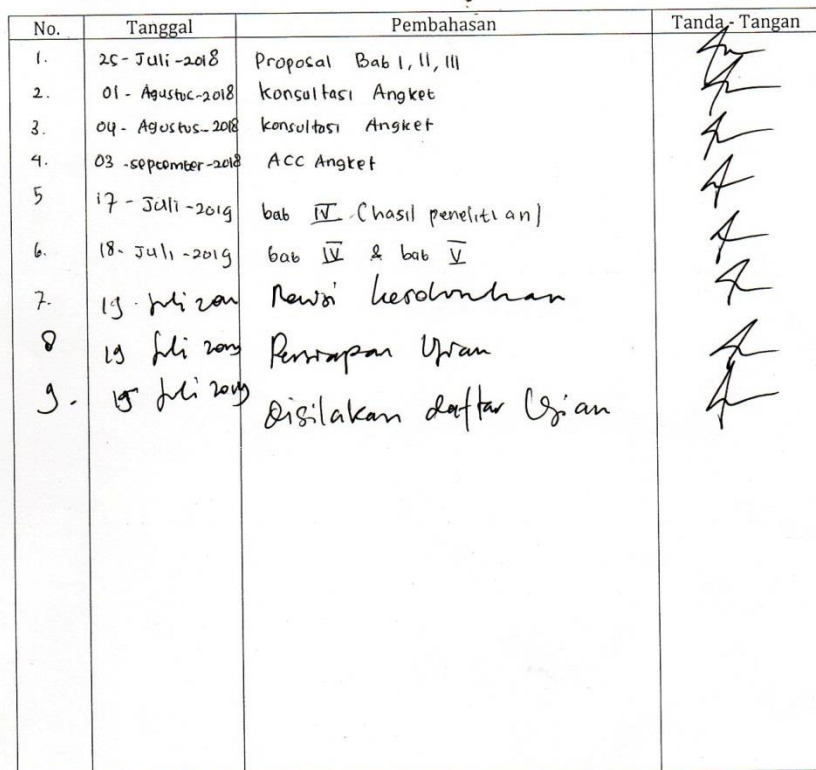 No. Tanggal Pembahasan Tanda - Tangan
1. 25 - Juli - 2018 Proposal Bab I, II, III
2. 01 - Agustus - 2018 konsultasi Angket
3. 04 - Agustus - 2018 konsultasi Angket
4. 03 - september - 2018 ACC Angket
5 17 - Juli - 2019 bab IV (hasil penelitian)
6. 18 - Juli - 2019 bab IV & bab V
7. 19 Juli Revisi keseluruhan
8 19 Juli 2019 Persiapan Ujian
9. 19 Juli 2019 Disilakan daftar Ujian